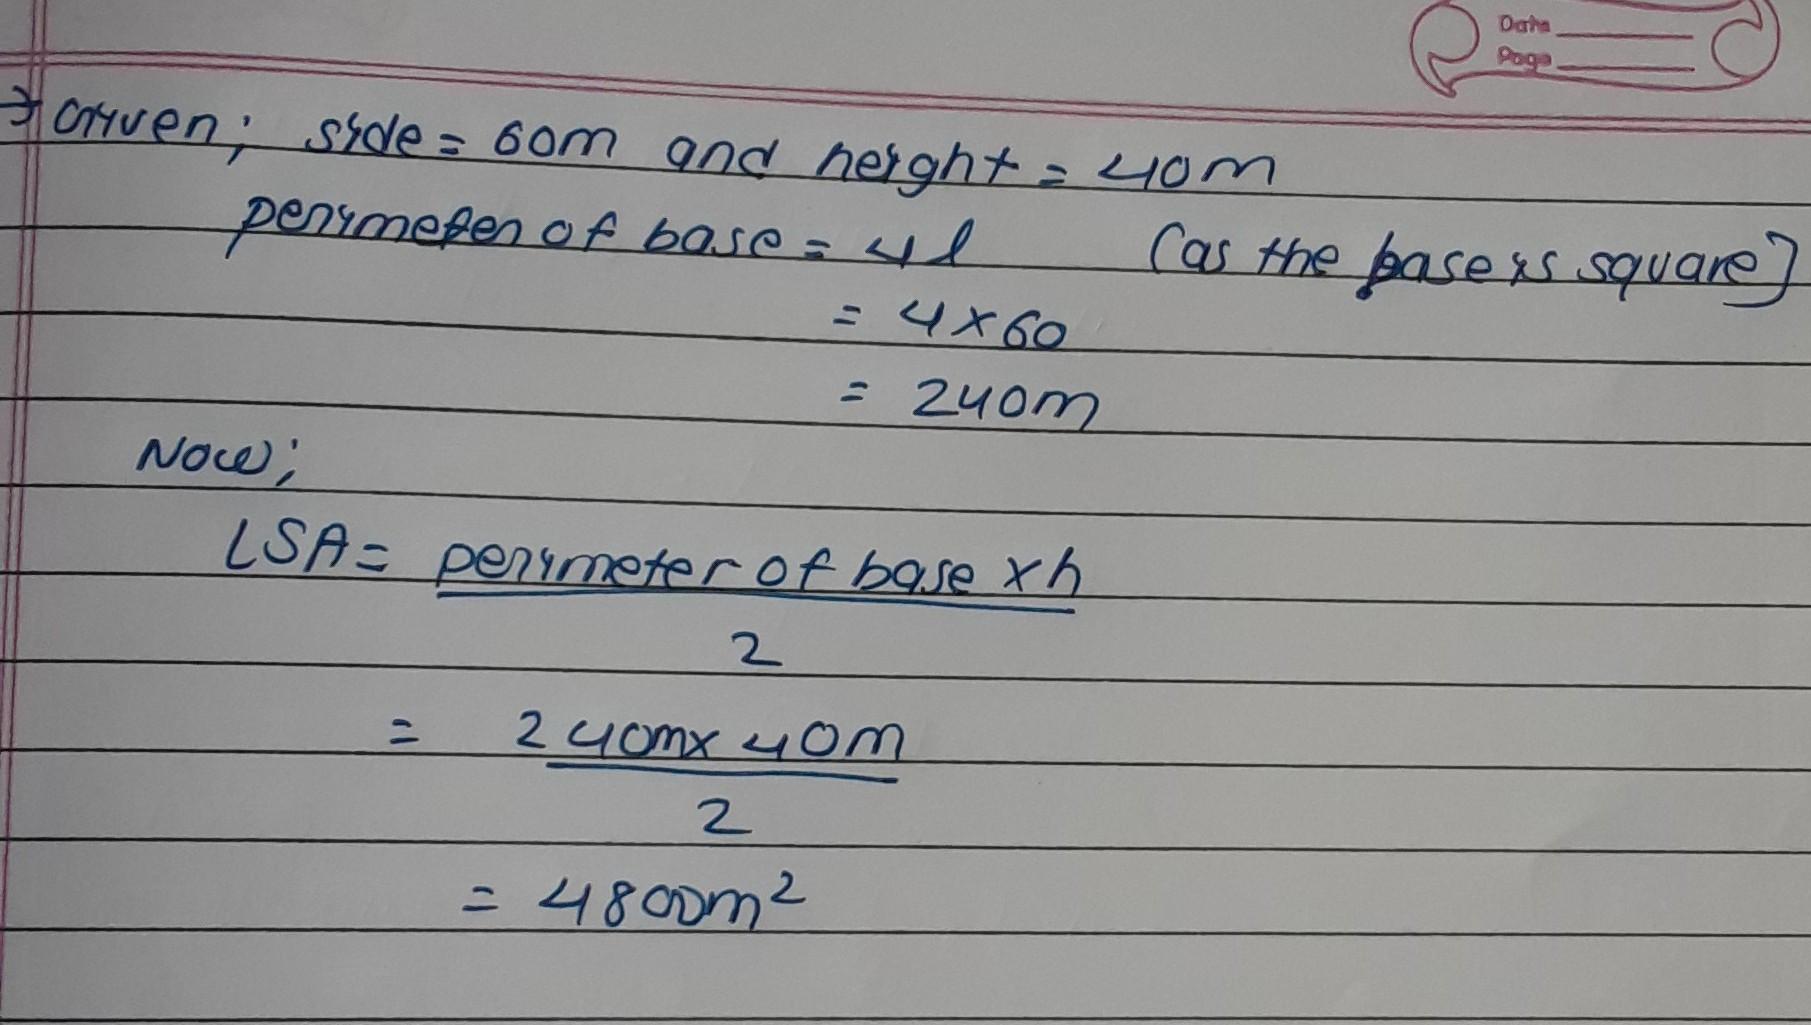 Date
Page
→ Given; side = 60m and height = 40m
perimeter of base = 4l (as the base is square)
= 4 × 60
= 240m
Now;
LSA = perimeter of base × h
2
= 240m × 40m
2
= 4800m²